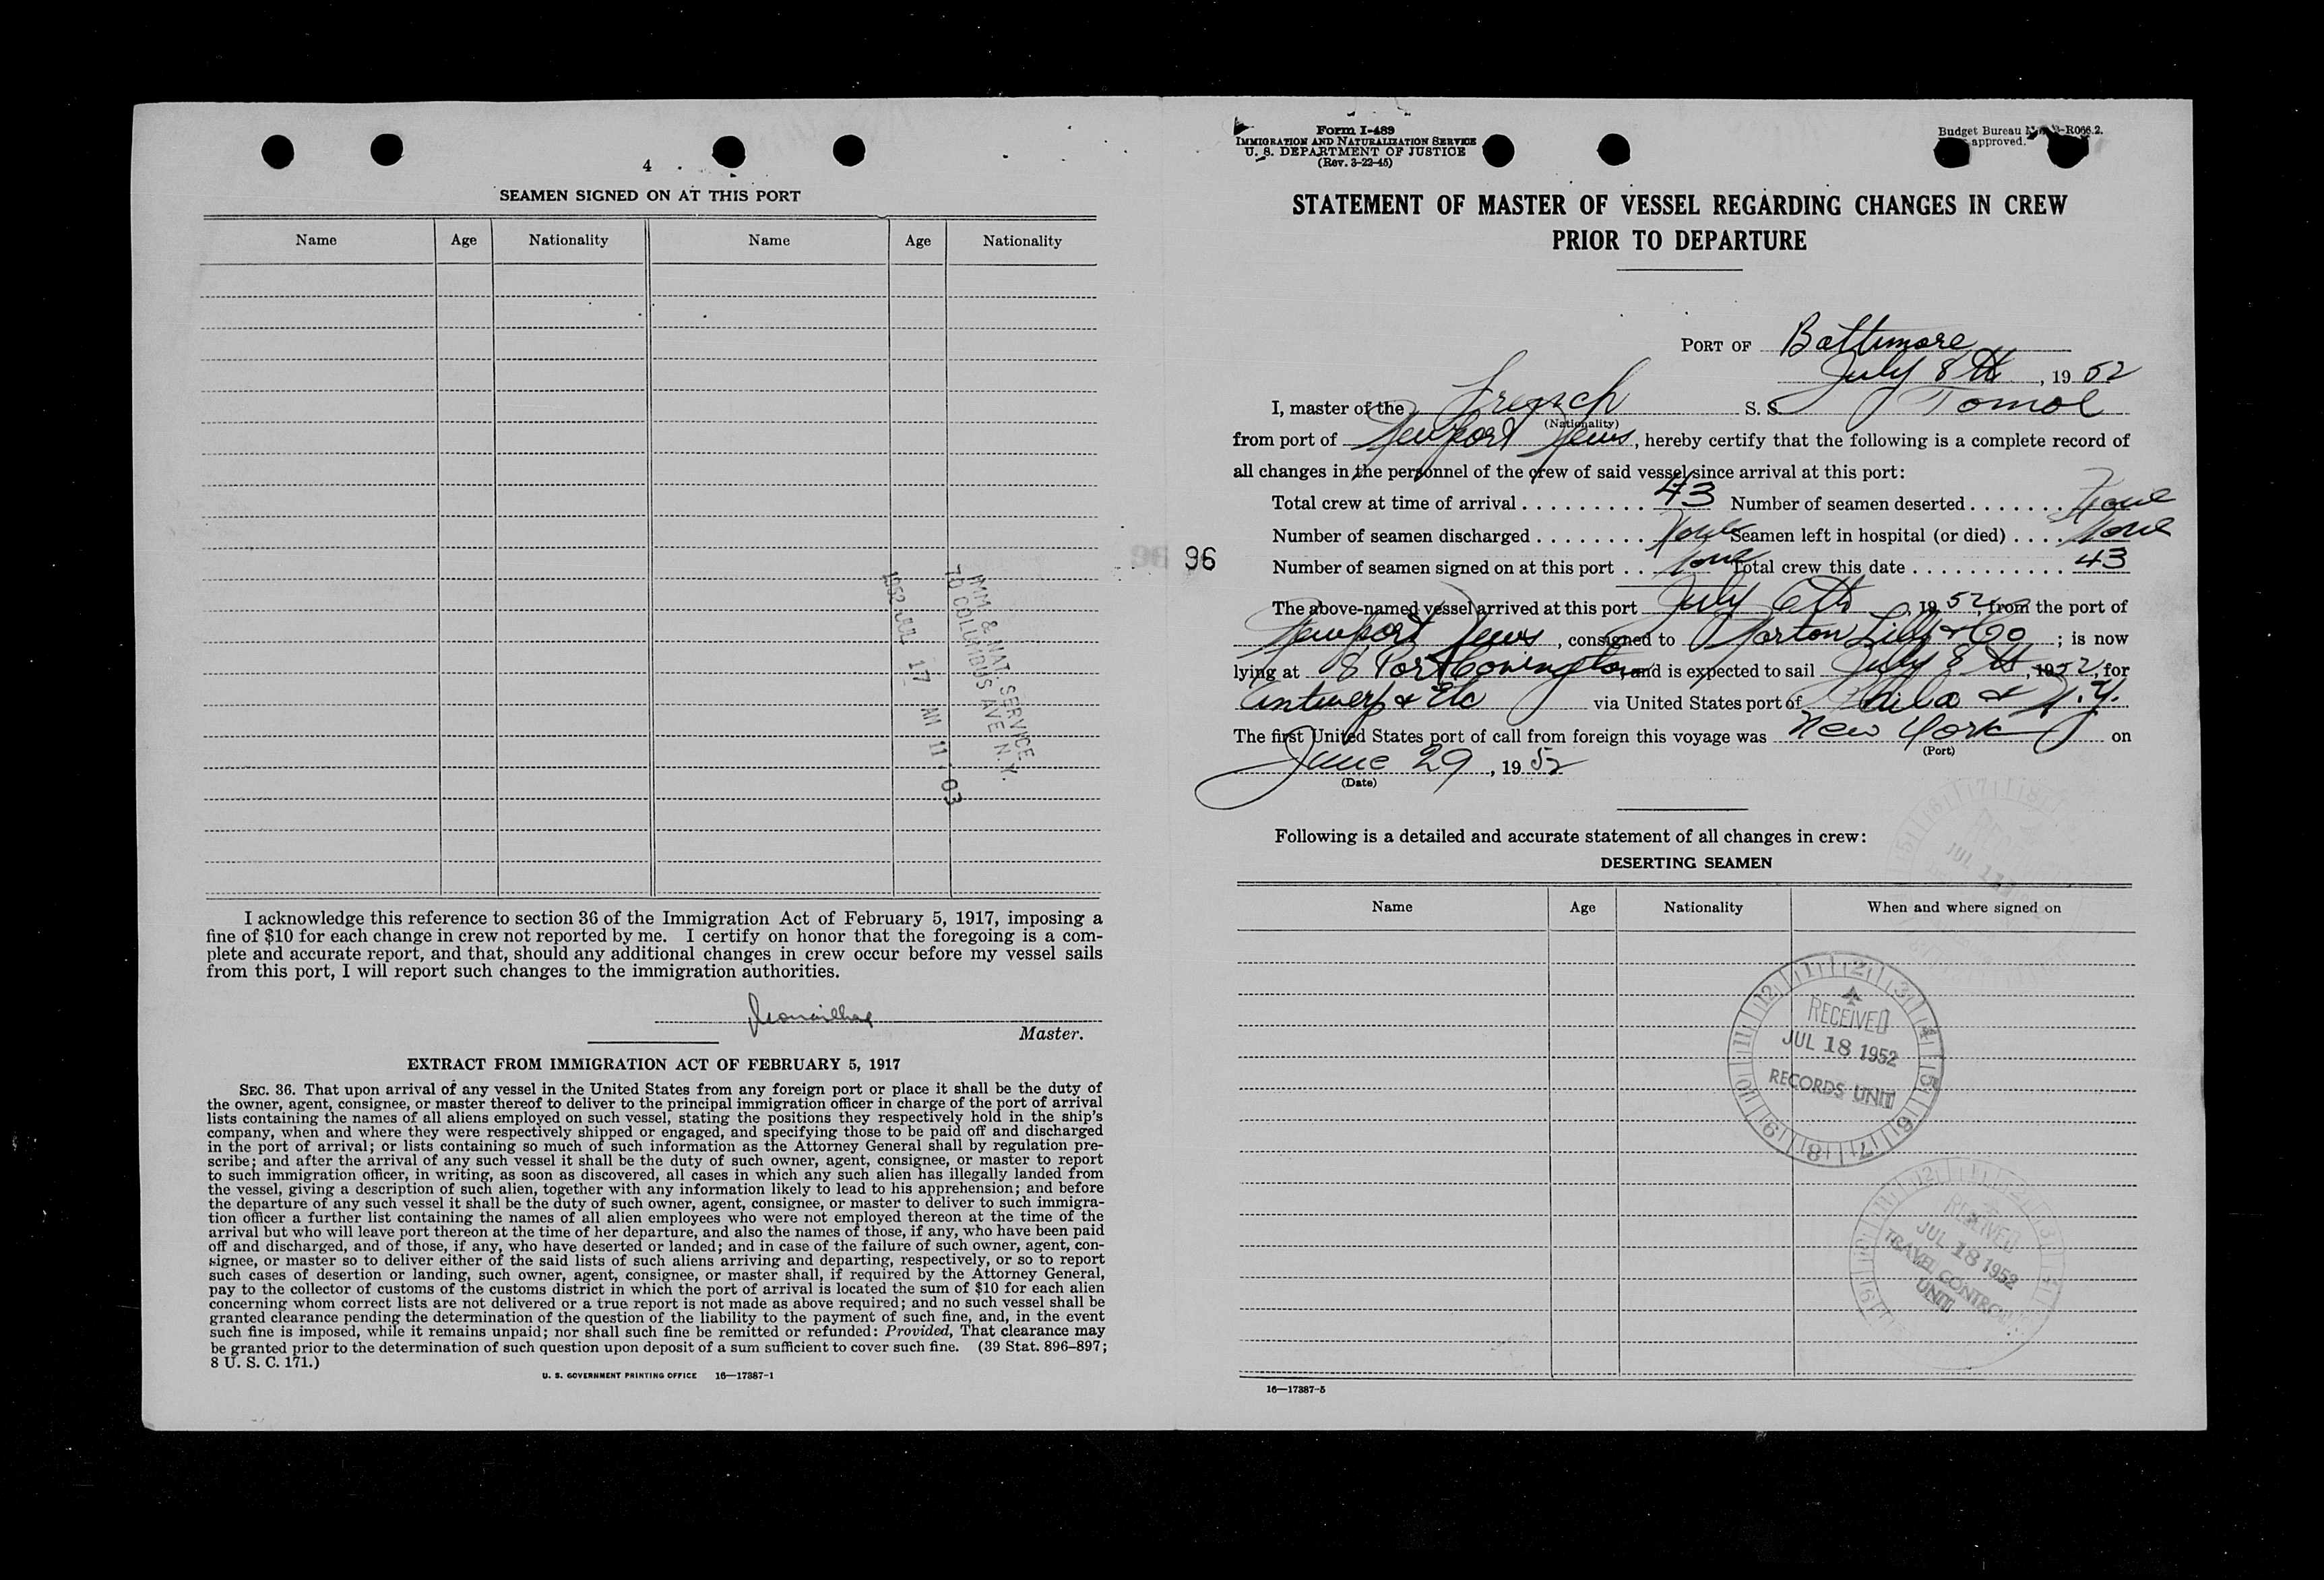 4
SEAMEN SIGNED ON AT THIS PORT
Name Age Nationality Name Age Nationality
IMM. & NAT. SERVICE
70 COLUMBUS AVE N.Y.
1952 JUL 17 AM 11 03
I acknowledge this reference to section 36 of the Immigration Act of February 5, 1917, imposing a
fine of $10 for each change in crew not reported by me. I certify on honor that the foregoing is a com-
plete and accurate report, and that, should any additional changes in crew occur before my vessel sails
from this port, I will report such changes to the immigration authorities.
Master.
EXTRACT FROM IMMIGRATION ACT OF FEBRUARY 5, 1917
SEC. 36. That upon arrival of any vessel in the United States from any foreign port or place it shall be the duty of
the owner, agent, consignee, or master thereof to deliver to the principal immigration officer in charge of the port of arrival
lists containing the names of all aliens employed on such vessel, stating the positions they respectively hold in the ship's
company, when and where they were respectively shipped or engaged, and specifying those to be paid off and discharged
in the port of arrival; or lists containing so much of such information as the Attorney General shall by regulation pre-
scribe; and after the arrival of any such vessel it shall be the duty of such owner, agent, consignee, or master to report
to such immigration officer, in writing, as soon as discovered, all cases in which any such alien has illegally landed from
the vessel, giving a description of such alien, together with any information likely to lead to his apprehension; and before
the departure of any such vessel it shall be the duty of such owner, agent, consignee, or master to deliver to such immigra-
tion officer a further list containing the names of all alien employees who were not employed thereon at the time of the
arrival but who will leave port thereon at the time of her departure, and also the names of those, if any, who have been paid
off and discharged, and of those, if any, who have deserted or landed; and in case of the failure of such owner, agent, con-
signee, or master so to deliver either of the said lists of such aliens arriving and departing, respectively, or so to report
such cases of desertion or landing, such owner, agent, consignee, or master shall, if required by the Attorney General,
pay to the collector of customs of the customs district in which the port of arrival is located the sum of $10 for each alien
concerning whom correct lists are not delivered or a true report is not made as above required; and no such vessel shall be
granted clearance pending the determination of the question of the liability to the payment of such fine, and, in the event
such fine is imposed, while it remains unpaid; nor shall such fine be remitted or refunded: Provided, That clearance may
be granted prior to the determination of such question upon deposit of a sum sufficient to cover such fine. (39 Stat. 896–897;
8 U. S. C. 171.)
U. S. GOVERNMENT PRINTING OFFICE 16—17387-1
Form I-489
IMMIGRATION AND NATURALIZATION SERVICE
U. S. DEPARTMENT OF JUSTICE
(Rev. 3-22-45)
Budget Bureau -R066.2.
approved.
STATEMENT OF MASTER OF VESSEL REGARDING CHANGES IN CREW
PRIOR TO DEPARTURE
PORT OF Baltimore
July 8th, 1952
I, master of the French S. S. Tomol
(Nationality)
from port of Newport News, hereby certify that the following is a complete record of
all changes in the personnel of the crew of said vessel since arrival at this port:
Total crew at time of arrival . . . . . . . . . . 43 Number of seamen deserted . . . . . . . None
Number of seamen discharged . . . . . . . . None Seamen left in hospital (or died) . . . . None
96
Number of seamen signed on at this port . . None Total crew this date . . . . . . . . . . . . 43
The above-named vessel arrived at this port July 6th, 1952, from the port of
Newport News, consigned to Norton Lilly & Co; is now
lying at 8 Port Covington, and is expected to sail July 8th, 1952, for
Antwerp & Etc via United States port of Phila & N.Y.
The first United States port of call from foreign this voyage was New York on
(Port)
June 29, 1952
(Date)
Following is a detailed and accurate statement of all changes in crew:
DESERTING SEAMEN
Name Age Nationality When and where signed on
RECEIVED
JUL 18 1952
RECORDS UNIT
RECEIVED
JUL 18 1952
TRAVEL CONTROL
UNIT
16—17387-5